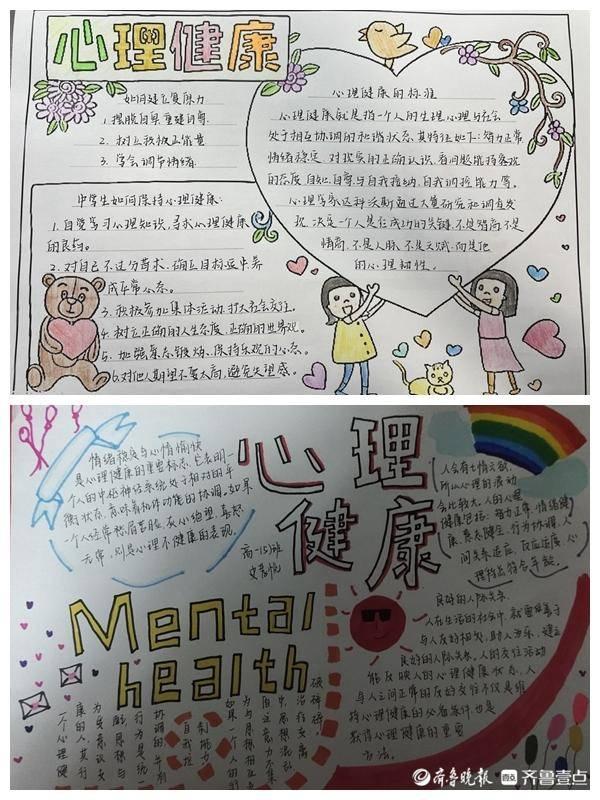 心理健康
如何建立复原力
1. 摆脱自卑重建自尊
2. 树立积极正能量
3. 学会调节情绪
中学生如何保持心理健康:
1.自觉学习心理知识,寻求心理健康
的良方。
2.对自己不过分苛求,确立目标适中,养
成平常心态。
3.积极参加集体活动,扩大社会交往。
4.树立正确的人生态度,正确的世界观。
5.加强意志锻炼,保持乐观的心态。
6.对他人期望不要太高,避免失望感。
心理健康的标准
心理健康就是指一个人的生理、心理与社会
处于相互协调的和谐状态,其特征如下:智力正常
情绪稳定,对现实的正确认识,看问题能持客观
的态度,自知,自尊与自我接纳,自我调控能力等。
心理学家达科沃斯通过大量研究和调查发
现,决定一个人是否成功的关键,不是智商,不是
情商,不是人脉,不是天赋,而是他
的心理韧性。
心理
健康
高一15)班
情绪稳定与心情愉快
是心理健康的重要标志,它表明一
个人的中枢神经系统处于相对的平
衡状态,意味着机体功能的协调,如果
一个人经常愁眉苦脸,灰心绝望,喜怒
无常,则是心理不健康的表现。
人会有七情六欲,
所以心理的波动
会比较大,人的心理
健康包括:智力正常,情绪健
康,意志健全,行为协调,人
间关系适应,反应适度,心
理特点符合年龄。
Mental
health
良好的人际关系
人在生活的社会中,就要乐善于
与人友好相处,助人为乐,建立
良好的人际关系。人的交往活动
能反映人的心理健康状态,人
与人之间正常的友好交往不仅是维
持心理健康的必备条件,也是
获得心理健康的重要
方法。
自我控制能力
齐鲁晚报 齐鲁壹点